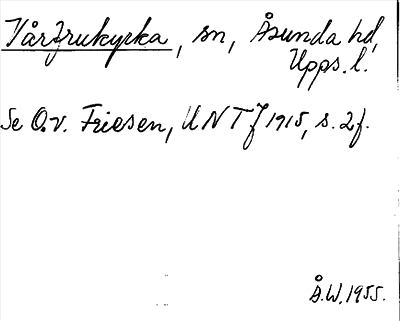 Vårfrukyrka, sn, Åsunda hd,
Upps. l.
Se O.v. Friesen, UNT J 1915, s. 2f.
Å.W. 1955.